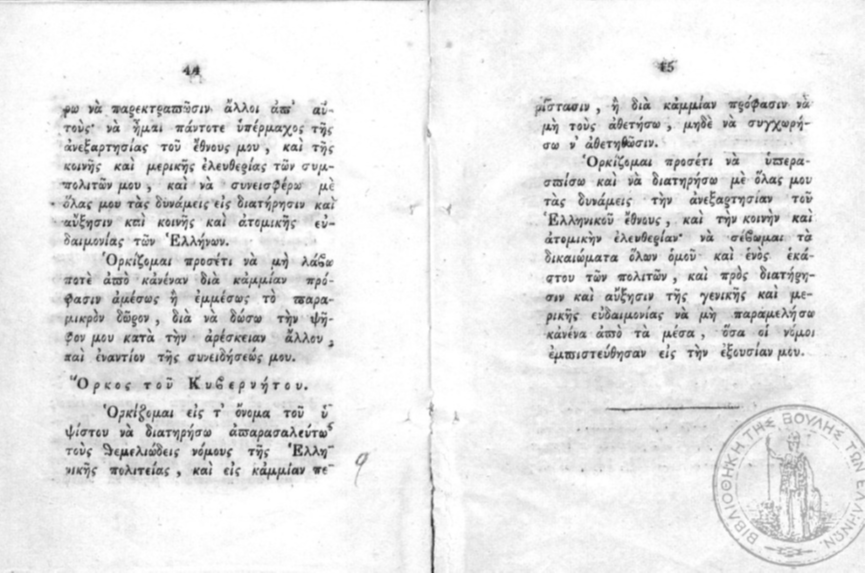 44
ρω νὰ παρεκτραπῶσιν ἄλλοι ἀπ' αὐ-
τούς· νὰ ἦμαι πάντοτε ὑπέρμαχος τῆς
ἀνεξαρτησίας τοῦ ἔθνους μου, καὶ τῆς
κοινῆς καὶ μερικῆς ἐλευθερίας τῶν συμ-
πολιτῶν μου, καὶ νὰ συνεισφέρω μὲ
ὅλας μου τὰς δυνάμεις εἰς διατήρησιν καὶ
αὔξησιν καὶ κοινῆς καὶ ἀτομικῆς εὐ-
δαιμονίας τῶν Ἑλλήνων.
Ὁρκίζομαι προσέτι νὰ μὴ λάβω
ποτὲ ἀπὸ κἀνέναν διὰ κἀμμίαν πρό-
φασιν ἀμέσως ἢ ἐμμέσως τὸ παρα-
μικρὸν δῶρον, διὰ νὰ δώσω τὴν ψῆ-
φον μου κατὰ τὴν ἀρέσκειαν ἄλλου,
παὶ ἐναντίον τῆς συνειδήσεώς μου.
Ὅρκος τοῦ Κυβερνήτου.
Ὁρκίζομαι εἰς τ' ὄνομα τοῦ ὑ
ψίστου νὰ διατηρήσω ἀπαρασαλεύτως
τοὺς θεμελιώδεις νόμους τῆς Ἑλλη-
νικῆς πολιτείας, καὶ εἰς κἀμμίαν πε
45
ρίστασιν, ἢ διὰ κἀμμίαν πρόφασιν νὰ
μὴ τοὺς ἀθετήσω, μηδὲ νὰ συγχωρή-
σω ν' ἀθετηθῶσιν.
Ὁρκίζομαι προσέτι νὰ ὑπερα-
σπίσω καὶ νὰ διατηρήσω μὲ ὅλας μου
τὰς δυνάμεις τὴν ἀνεξαρτησίαν τοῦ
Ἑλληνικοῦ ἔθνους, καὶ τὴν κοινὴν καὶ
ἀτομικὴν ἐλευθερίαν· νὰ σέβωμαι τὰ
δικαιώματα ὅλων ὁμοῦ καὶ ἑνὸς ἑκά-
στου τῶν πολιτῶν, καὶ πρὸς διατήρη-
σιν καὶ αὔξησιν τῆς γενικῆς καὶ με-
ρικῆς εὐδαιμονίας νὰ μὴ παραμελήσω
κἀνένα ἀπὸ τὰ μέσα, ὅσα οἱ νόμοι
ἐμπιστεύθησαν εἰς τὴν ἐξουσίαν μου.
ΒΙΒΛΙΟΘΗΚΗ ΤΗΣ ΒΟΥΛΗΣ ΤΩΝ ΕΛΛΗΝΩΝ